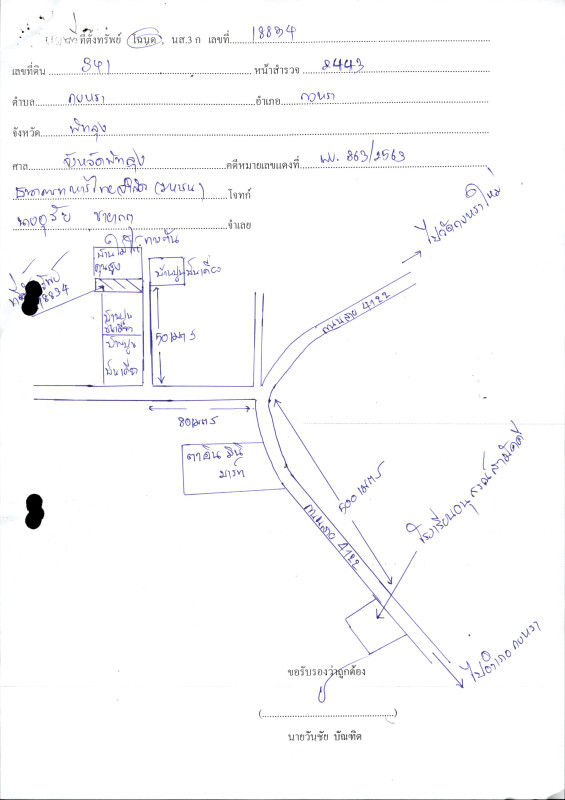 ที่ตั้งทรัพย์ โฉนด, นส.3 ก เลขที่ 18834
เลขที่ดิน 341 หน้าสำรวจ 2443
ตำบล กงหรา อำเภอ กงหรา
จังหวัด พัทลุง
ศาล จังหวัดพัทลุง คดีหมายเลขแดงที่ ผบ. 863/2563
(มหาชน) โจทก์
จำเลย
ทางตัน
ไปวัดกงหราใหม่
18834
บ้านปูนชั้นเดียว
ถนนสาย 4122
บ้านปูน
ชั้นเดียว
บ้านปูน
ชั้นเดียว
50 เมตร
80 เมตร
มินิ
มาร์ท
500 เมตร
ถนนสาย 4122
ไปอำเภอกงหรา
ขอรับรองว่าถูกต้อง
(............................................)
นายวันชัย บัณฑิต